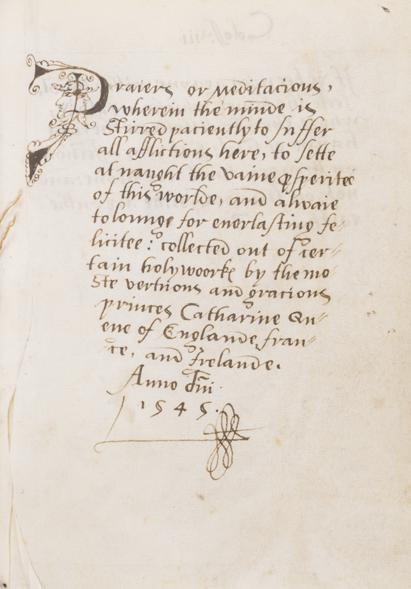 Praiers or Meditacions,
wherein the mīnde is
stirred paciently to suffer
all afflictions here, to sette
at naught the vaine ꝓsperitee
of this worlde, and alwaie
to lounge for everlasting fe⸗
licitee: collected out of cer⸗
tain holy woorkꝭ by the mo
ste vertuous and gracious
princes Catharine Qu⸗
ene of Englande, fran⸗
ce, and Irelande.
Anno dn̄i
1545.